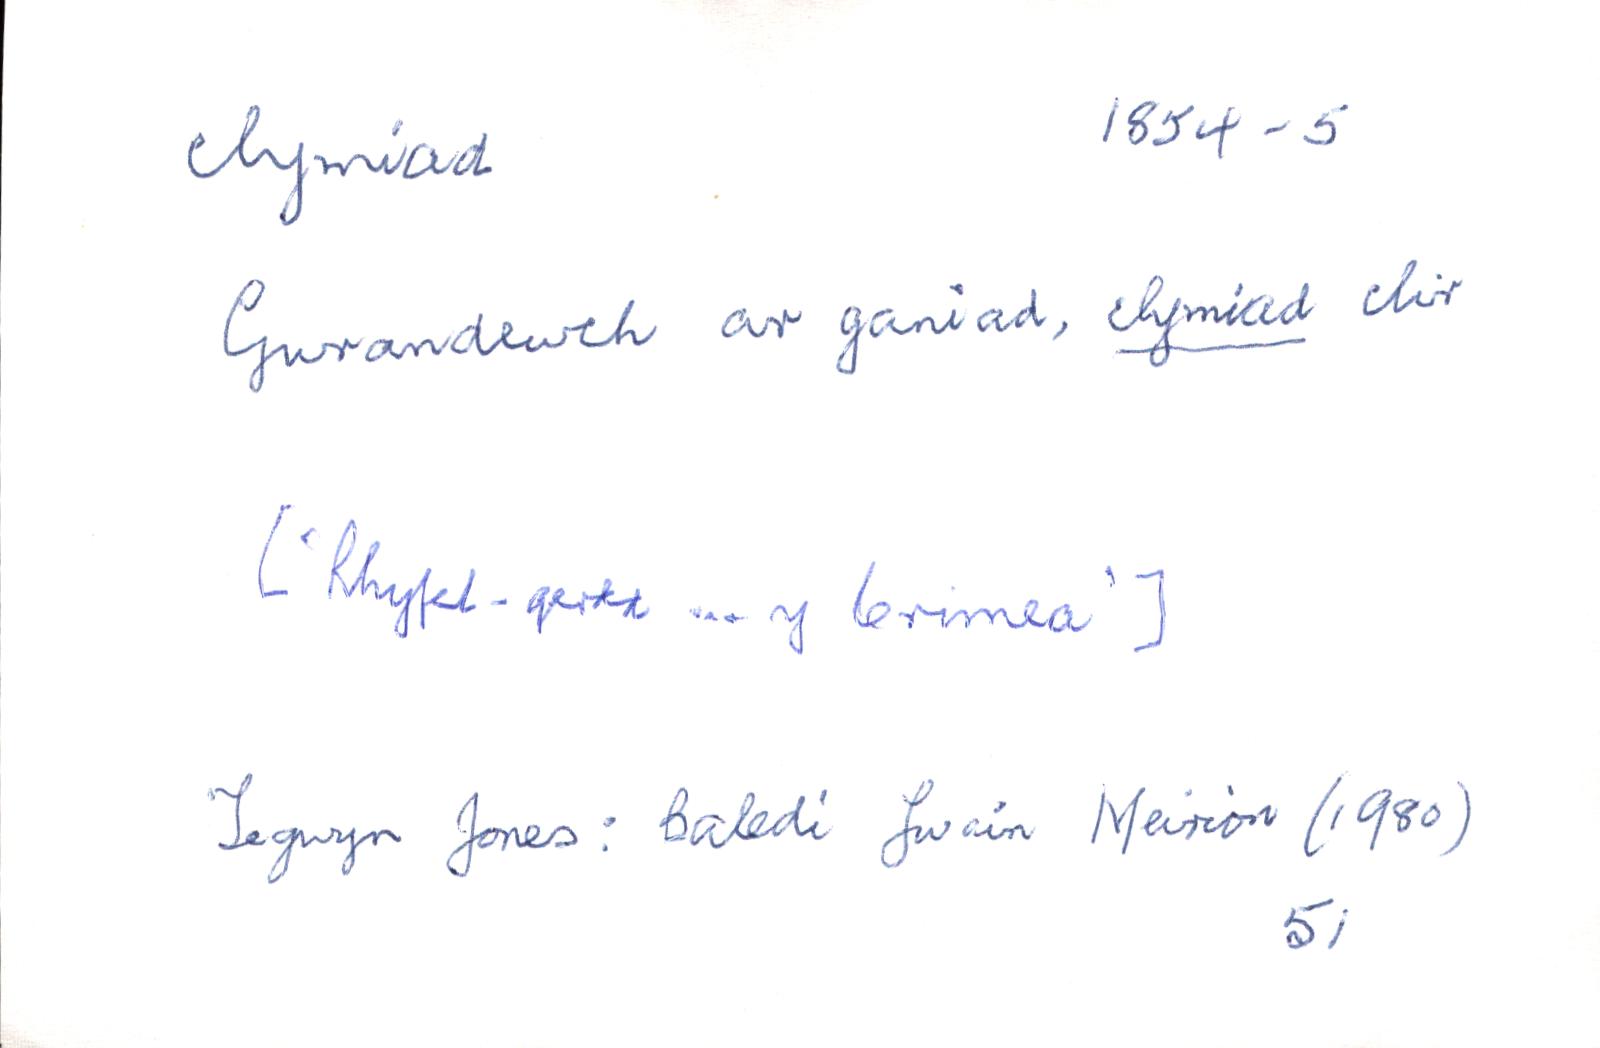 clymiad 1854-5
Gwrandewch ar ganiad, clymiad clir
['Rhyfel-gerdd ... y Crimea']
Tegwyn Jones: Baledi Ywain Meirion (1980)
51